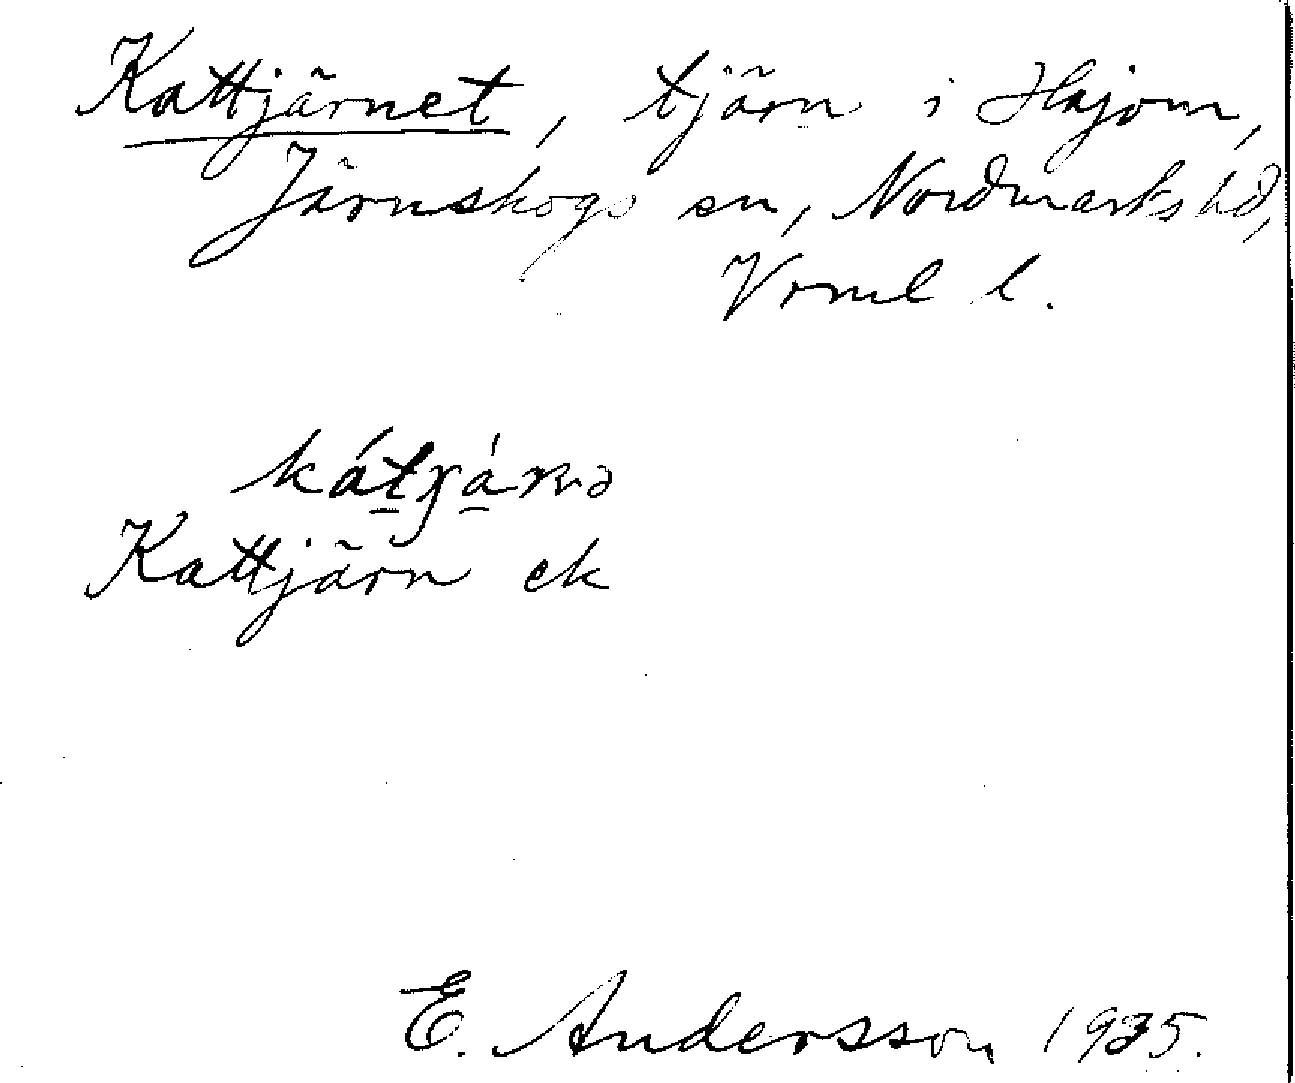 Kattjärnet, tjärn i Häjom,
Järnskogs sn, Nordmarks hd,
Vrml l.
Kattjärn ek
E. Andersson 1935.